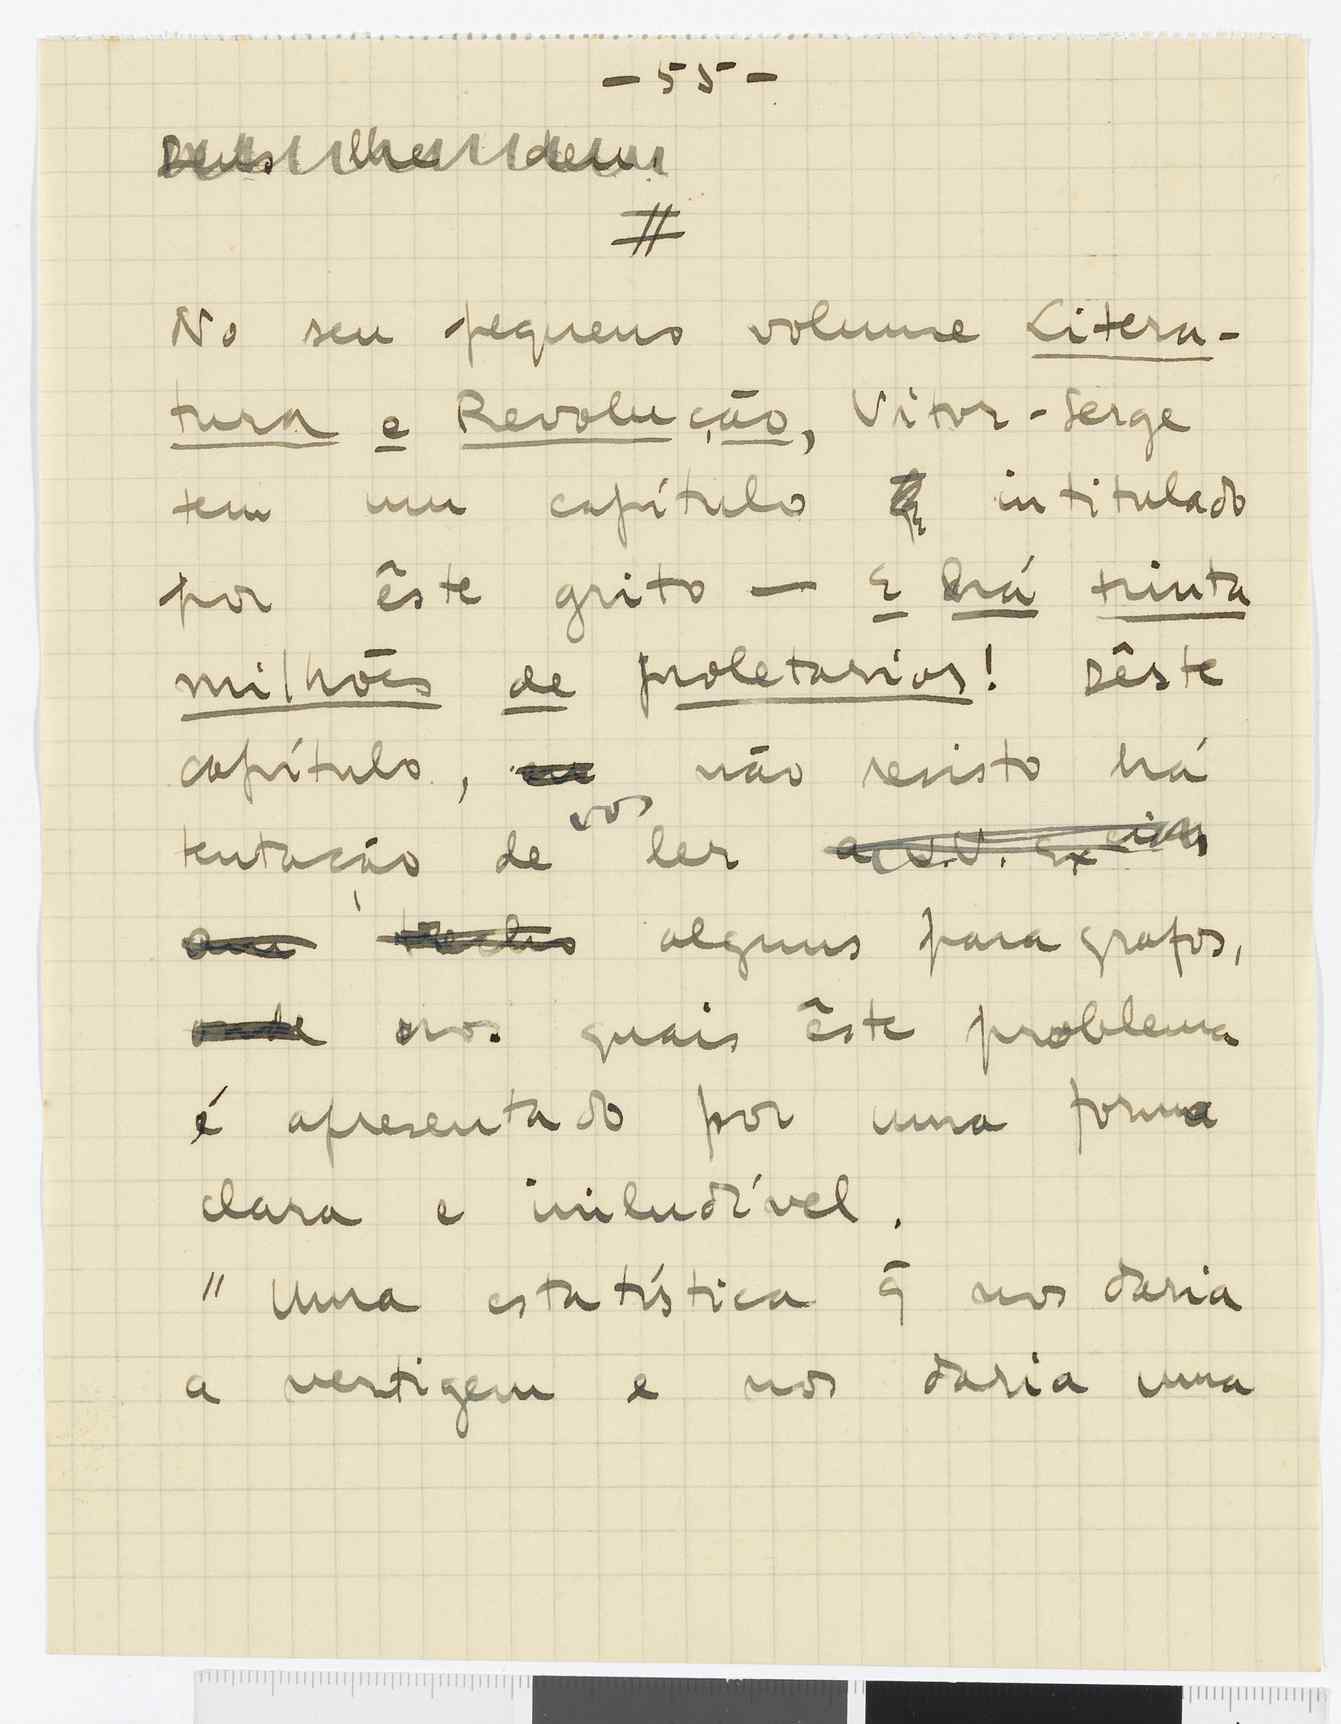 - 55 -
Deus lhes dem
#
No seu pequeno volume Litera-
tura e Revolução, Vitor-Serge
tem um capítulo intitulado
por êste grito — E há trinta
milhões de proletarios! Dêste
capítulo, não resisto há
vos
tentação de ler a V. Ex cias
alguns paragrafos,
onde nos quais êste problema
é apresentado por uma forma
clara e iniludível.
" Uma estatística q̃ nos daria
a vertigem e nos daria uma